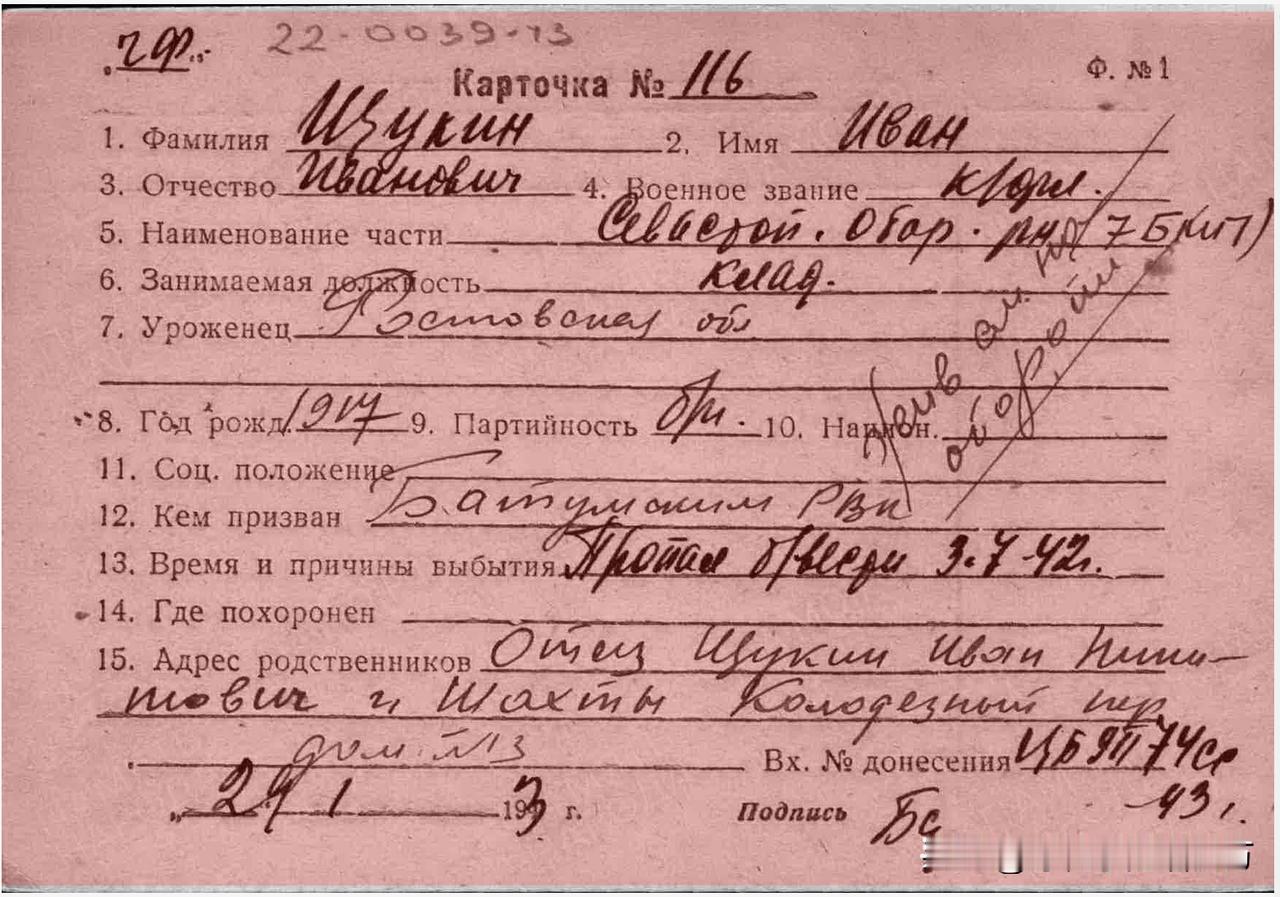 ч.ф. 22-0039-13
Карточка № 116 Ф. №1
1. Фамилия Щукин 2. Имя Иван
3. Отчество Иванович 4. Военное звание к/фл.
5. Наименование части Севастоп. Обор. рн (7 БКМП)
6. Занимаемая должность клад.
7. Уроженец Ростовская обл
8. Год рожд. 1917 9. Партийность б/п. 10. Национ.
11. Соц. положение
12. Кем призван Батумским РВК
13. Время и причины выбытия Пропал б/вести 3.7-42г.
14. Где похоронен
15. Адрес родственников Отец Щукин Иван Ники-
тович г. Шахты Колодезный пер
дом №13
Вх. № донесения 74сс
29/1 1943 г. Подпись -43 г.
на
обороте